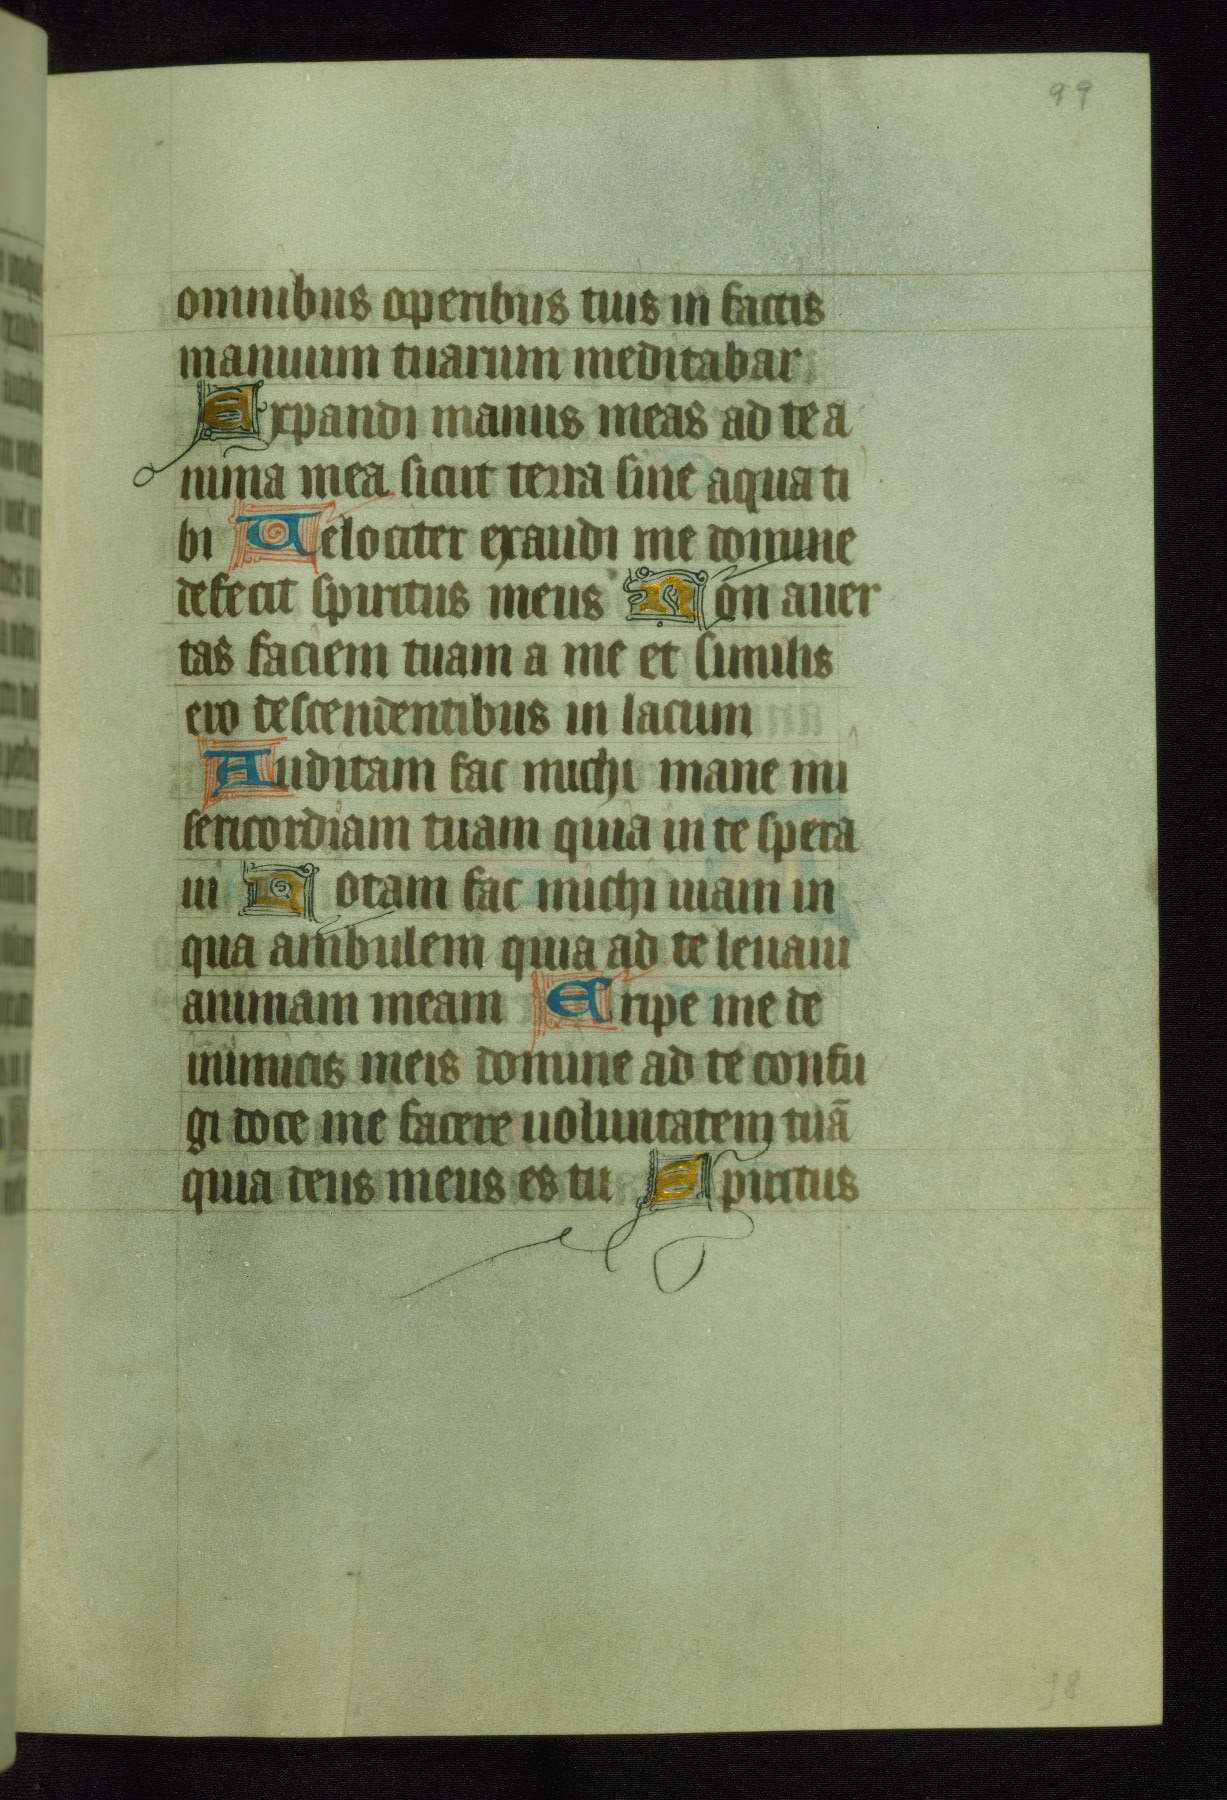 99
omnibus operibus tuis in factis
manuum tuarum meditabar
Expandi manus meas ad te a
nima mea sicut terra sine aqua ti
bi Uelociter exaudi me domine
defecit spiritus meus Non auer
tas faciem tuam a me et similis
ero descendentibus in lacum
Auditam fac michi mane mi
sericordiam tuam quia in te spera
ui Notam fac michi uiam in
qua ambulem quia ad te leuaui
animam meam Eripe me de
inimicis meis domine ad te confu
gi doce me facere uoluntatem tuā
quia deus meus es tu Spiritus
98